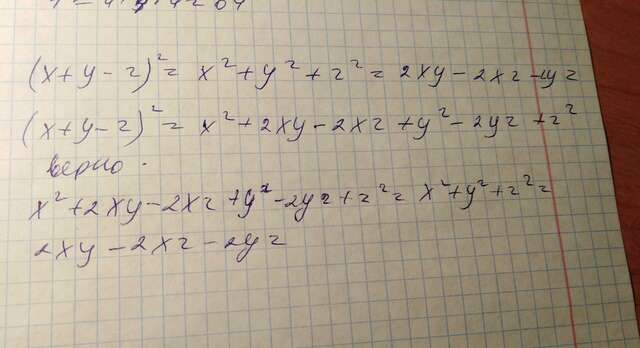 (x+y-z)² = x²+y²+z² = 2xy-2xz-yz
(x+y-z)² = x²+2xy-2xz+y²-2yz+z²
верно.
x²+2xy-2xz+y²-2yz+z² = x²+y²+z² =
2xy-2xz-2yz